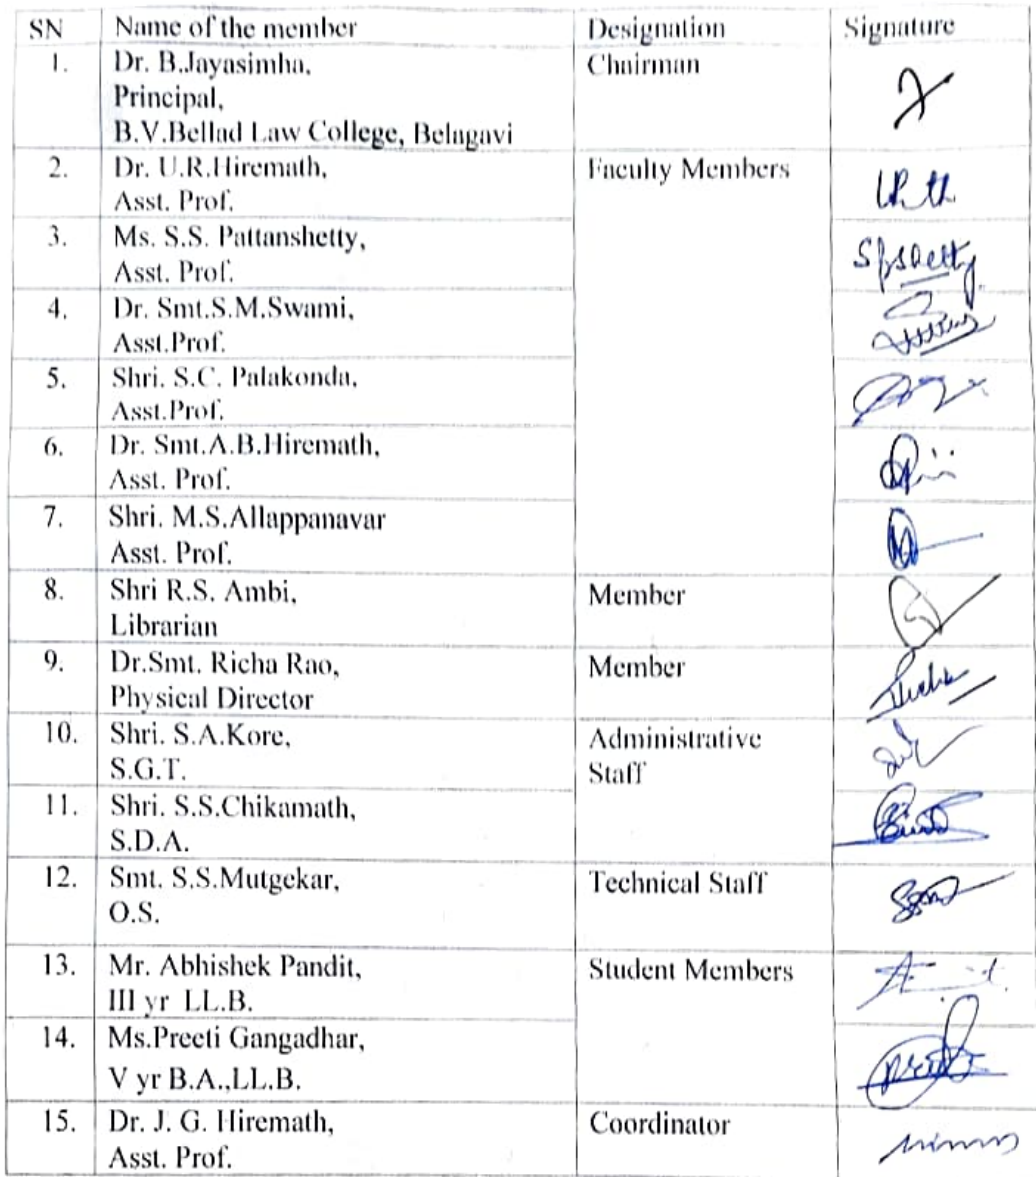 SN Name of the member Designation Signature
1. Dr. B.Jayasimha, Chairman
Principal,
B.V.Bellad Law College, Belagavi
2. Dr. U.R.Hiremath, Faculty Members
Asst. Prof.
3. Ms. S.S. Pattanshetty,
Asst. Prof.
4. Dr. Smt.S.M.Swami,
Asst.Prof.
5. Shri. S.C. Palakonda,
Asst.Prof.
6. Dr. Smt.A.B.Hiremath,
Asst. Prof.
7. Shri. M.S.Allappanavar
Asst. Prof.
8. Shri R.S. Ambi, Member
Librarian
9. Dr.Smt. Richa Rao, Member
Physical Director
10. Shri. S.A.Kore, Administrative
S.G.T. Staff
11. Shri. S.S.Chikamath,
S.D.A.
12. Smt. S.S.Mutgekar, Technical Staff
O.S.
13. Mr. Abhishek Pandit, Student Members
III yr LL.B.
14. Ms.Preeti Gangadhar,
V yr B.A.,LL.B.
15. Dr. J. G. Hiremath, Coordinator
Asst. Prof.